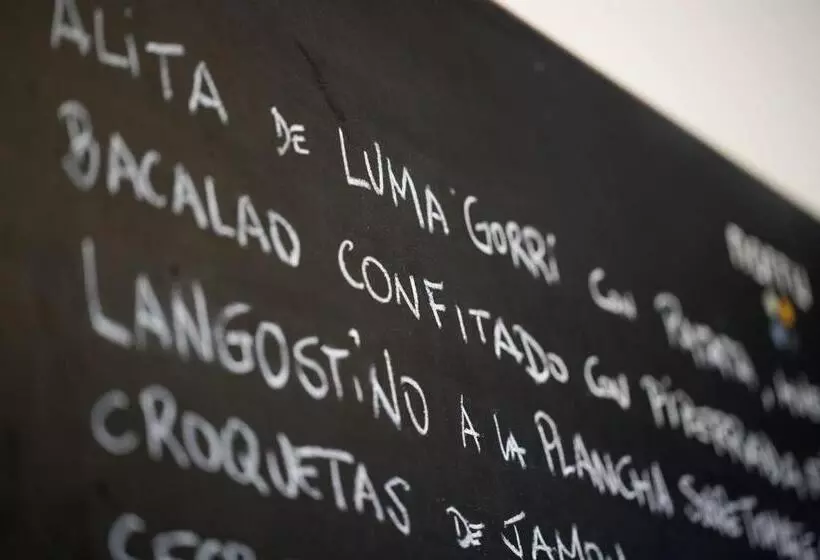 ALITA DE LUMA GORRI CON PATATA
BACALAO CONFITADO CON
LANGOSTINO A LA PLANCHA
CROQUETAS DE JAMON